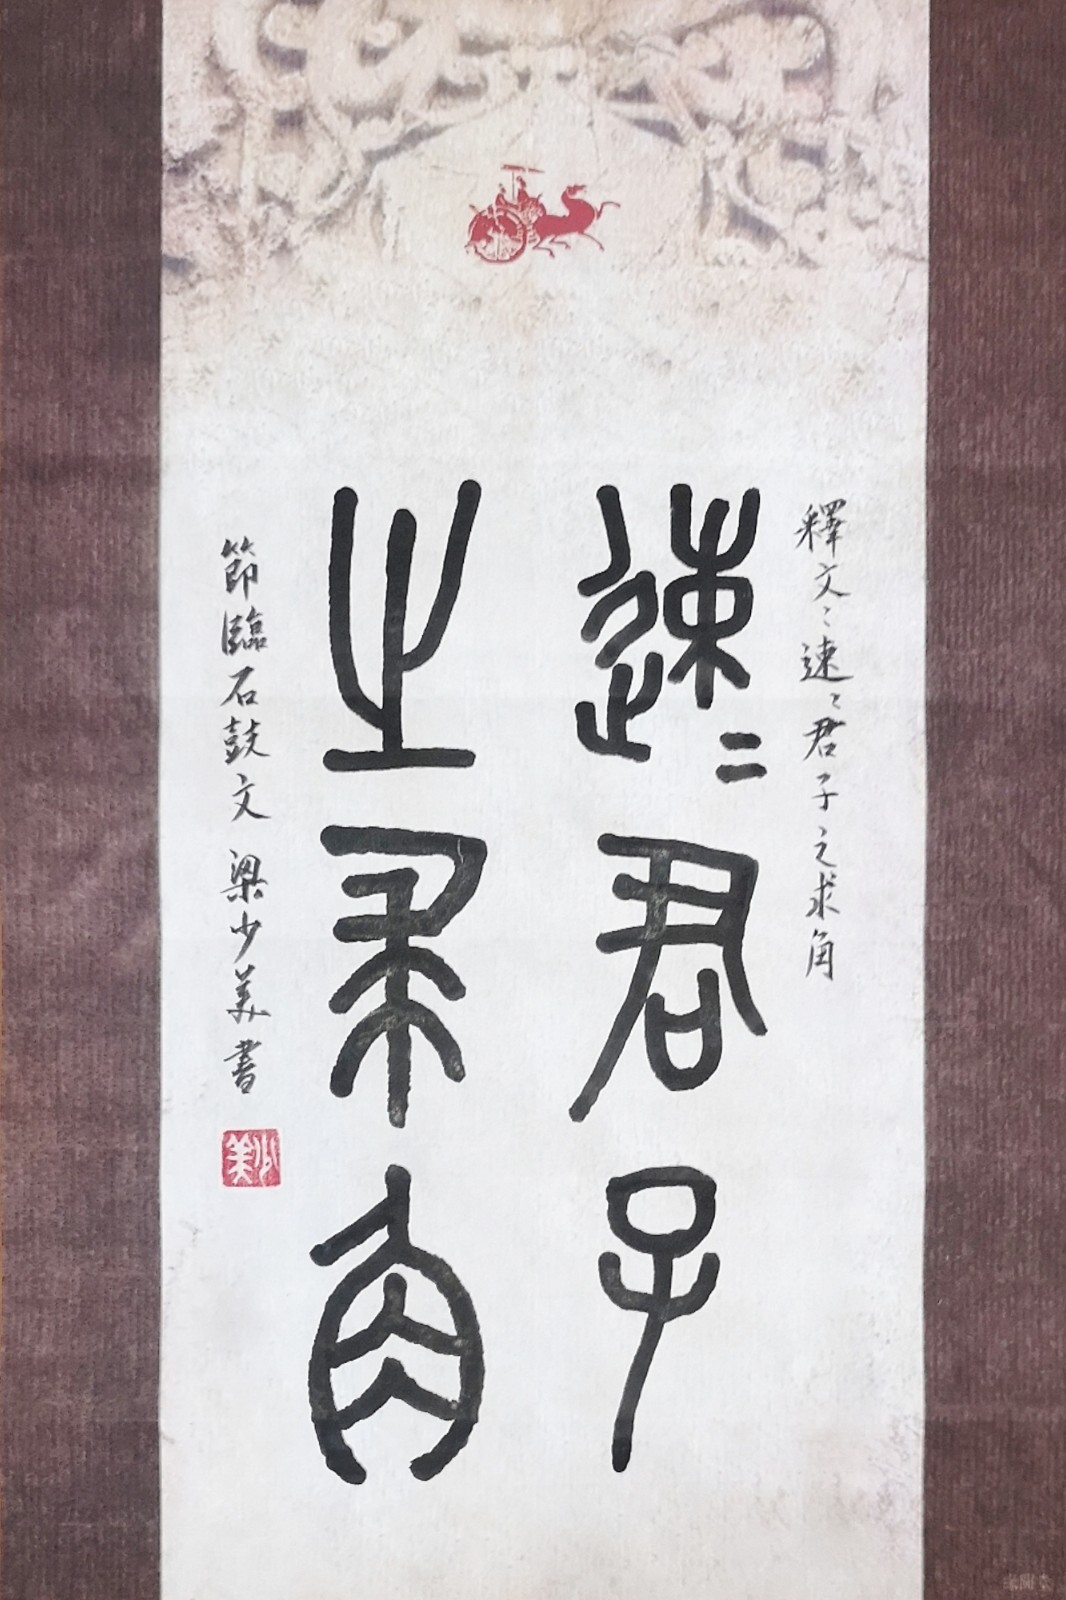 釋文：速〻君子之求角
速〻君子
之求角
節臨石鼓文 梁少美書
少美